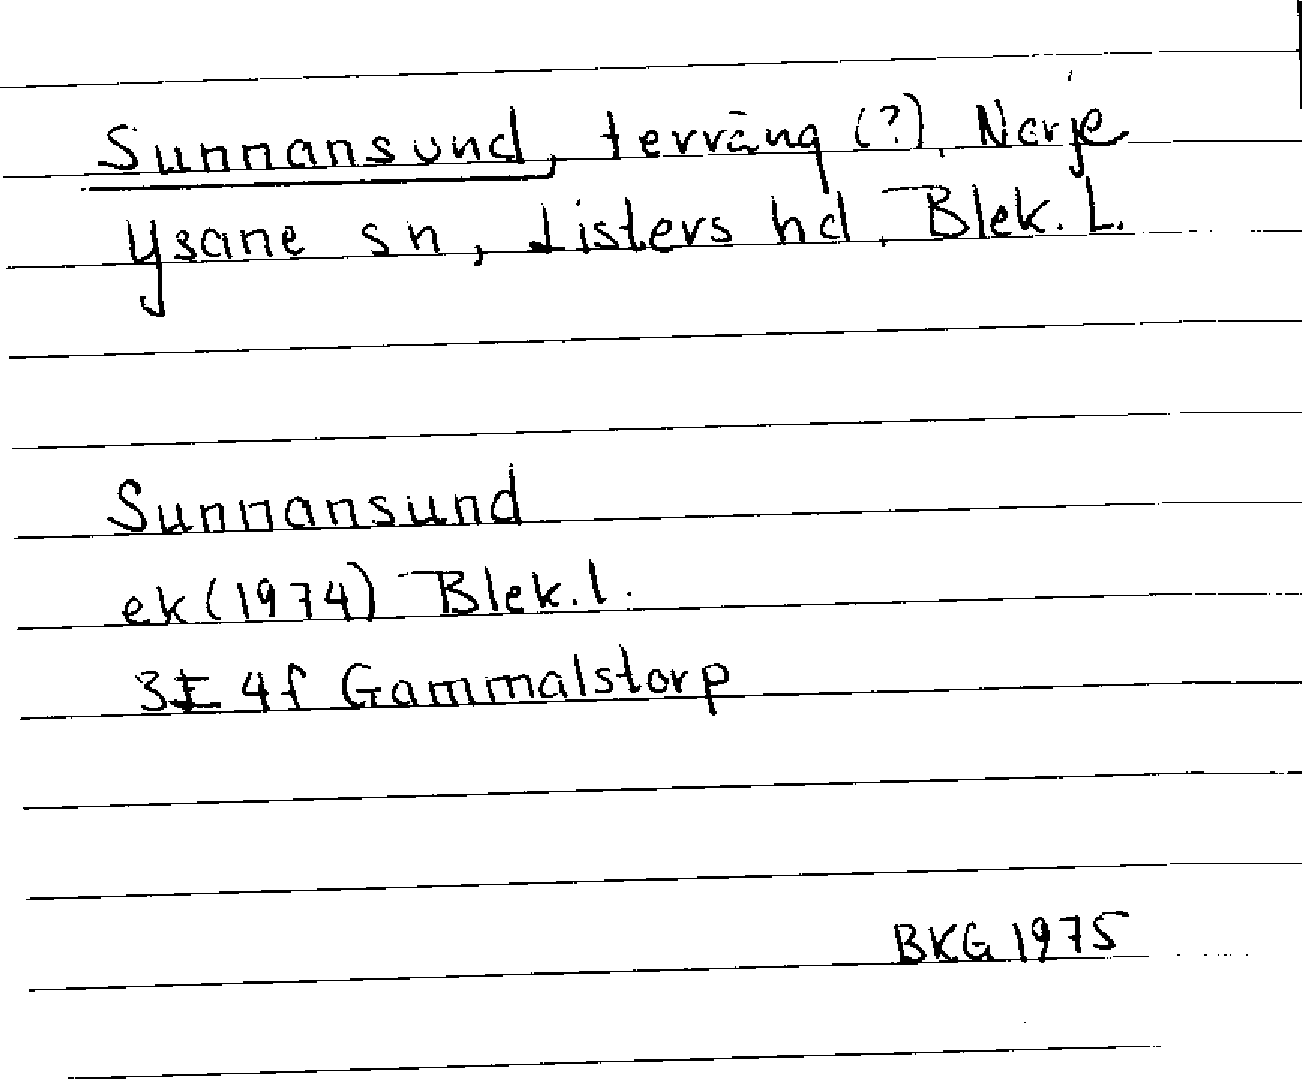 Sunnansund, terräng (?), Norje
Ysane sn, Listers hd, Blek. L.
Sunnansund
ek (1974) Blek. l.
3E 4f Gammalstorp
BKG 1975